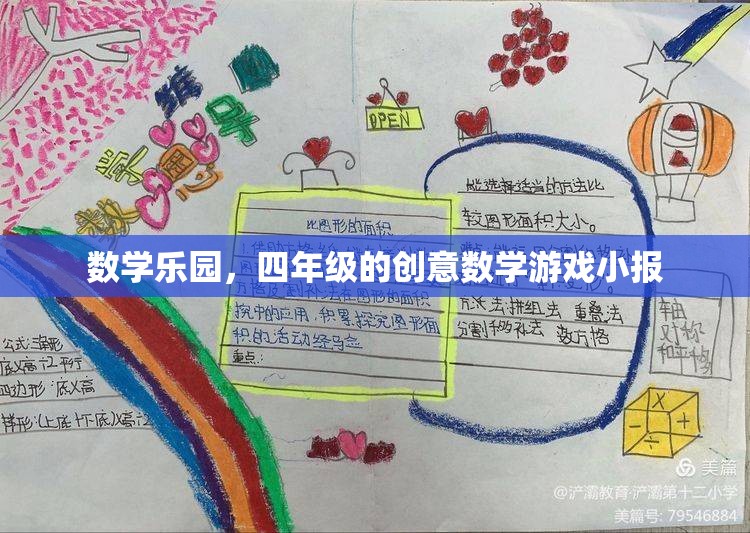 OPEN
比图形的面积
能选择适当的方法比
较图形面积大小。
数学乐园，四年级的创意数学游戏小报
探中的应用,积累探究图形面
积的活动经马佥
重点:
方法:拼组法 重叠法
分割移补法 数方格
轴
对称
和平移
公式:三角形
底乂高÷2.平行
四边形:底乂高
梯形:(上底十下底)乂高÷2
X
- +
÷
美篇
@浐灞教育·浐灞第十二小学
美篇号: 79546884